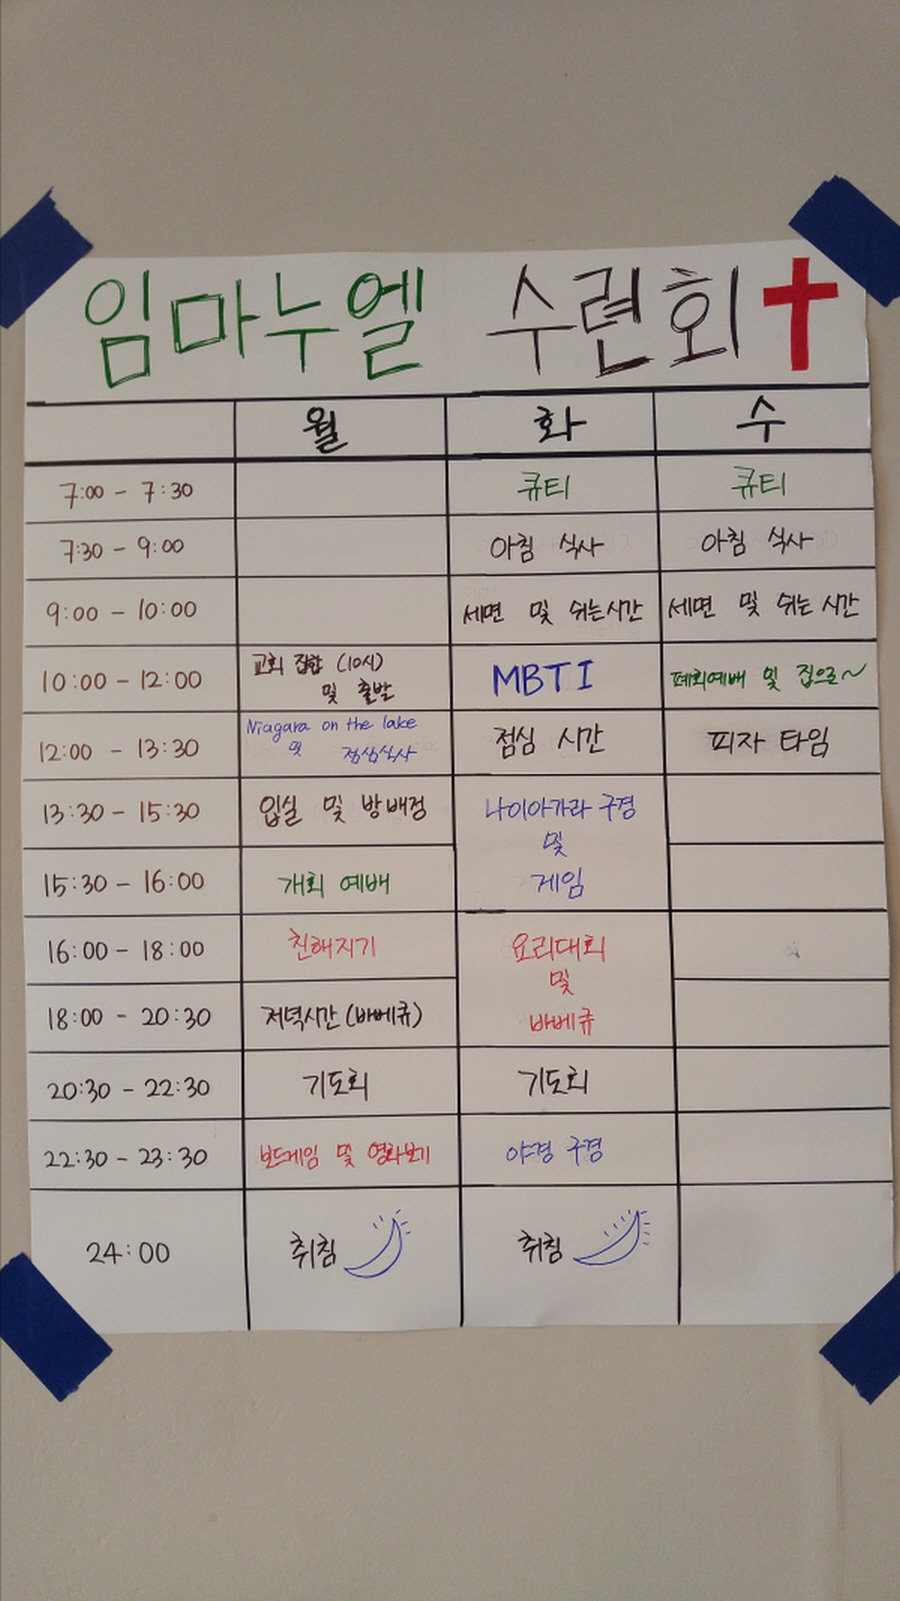 임마누엘 수련회
월 화 수
7:00 - 7:30 큐티 큐티
7:30 - 9:00 아침 식사 아침 식사
9:00 - 10:00 세면 및 쉬는시간 세면 및 쉬는 시간
10:00 - 12:00 교회 집합 (10시) 및 출발 MBTI 폐회예배 및 집으로~
12:00 - 13:30 Niagara on the lake 및 점심식사 점심 시간 피자 타임
13:30 - 15:30 입실 및 방배정 나이아가라 구경 및 게임
15:30 - 16:00 개회 예배
16:00 - 18:00 친해지기 요리대회 및 바베큐
18:00 - 20:30 저녁시간 (바베큐)
20:30 - 22:30 기도회 기도회
22:30 - 23:30 보드게임 및 영화보기 야경 구경
24:00 취침 취침